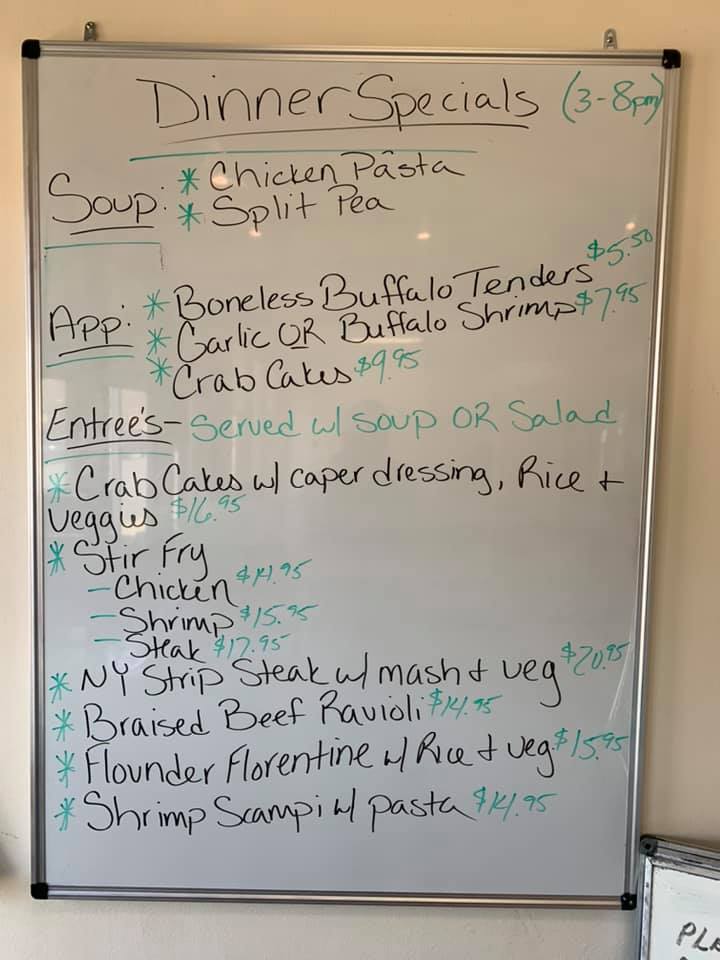 Dinner Specials (3-8pm)
Soup: * Chicken Pasta
* Split Pea
App: * Boneless Buffalo Tenders $5.50
* Garlic OR Buffalo Shrimp $7.95
* Crab Cakes $9.95
Entree's - Served w/ soup OR Salad
* Crab Cakes w/ caper dressing, Rice +
veggies $16.95
* Stir Fry
- Chicken $14.95
- Shrimp $15.95
- Steak $17.95
* NY Strip Steak w/ mash + veg $20.95
* Braised Beef Ravioli $14.95
* Flounder Florentine w/ Rice + veg $15.95
* Shrimp Scampi w/ pasta $14.95